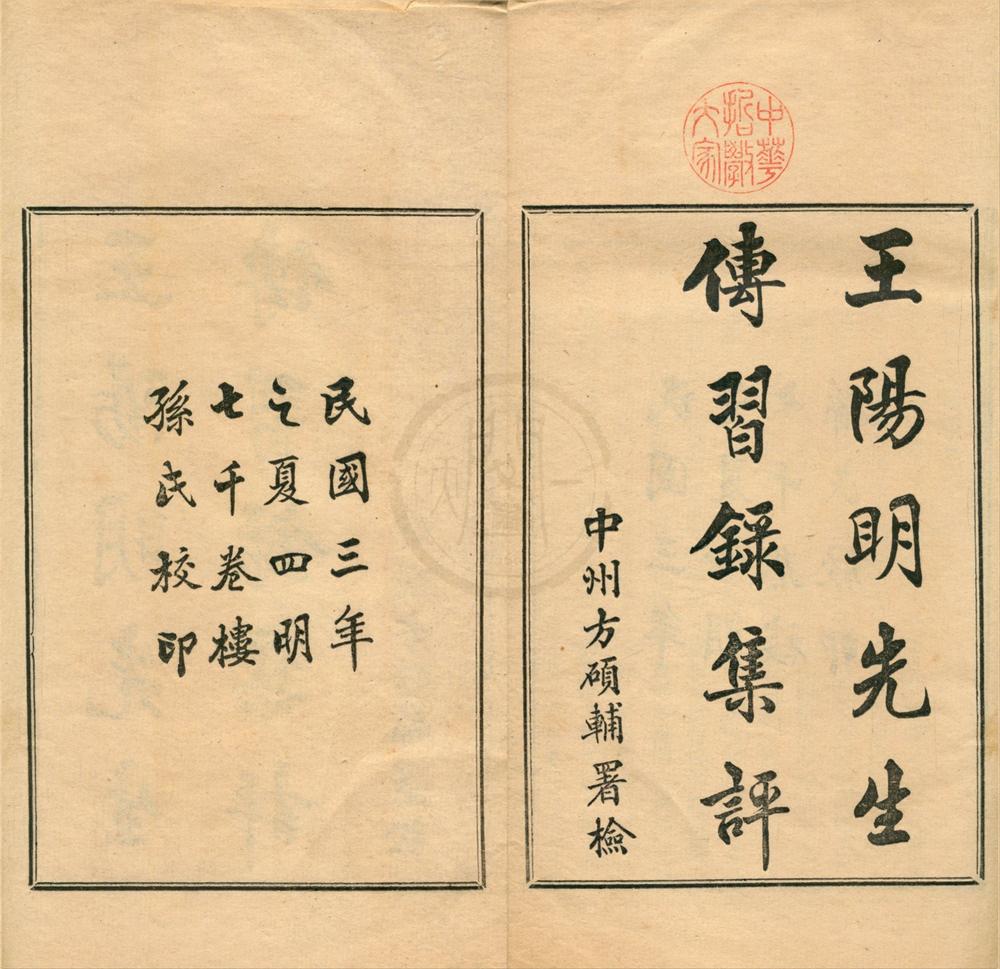 中華
哲學
大家
王陽明先生
傳習錄集評
中州方碩輔署檢
民國三年
之夏四明
七千卷樓
孫氏校印